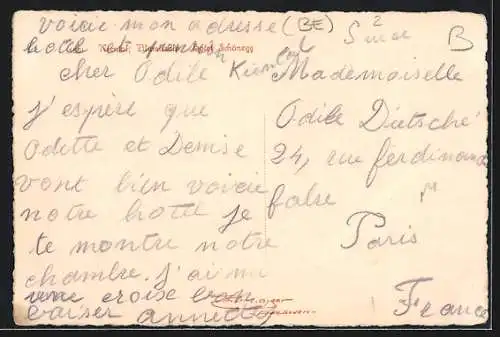 voicie mon adresse (BE) 2
hotel et pension Suisse B
Kiental, Hotel Schönegg
cher Odile Kiental
j'espère que
Odette et Denise
vont bien voicie
notre hotel je
te montre notre
chambre. j'ai mi
une croise bon
baiser annette
Mademoiselle
Odile Dietsché
24, rue ferdinand
false
Paris
France